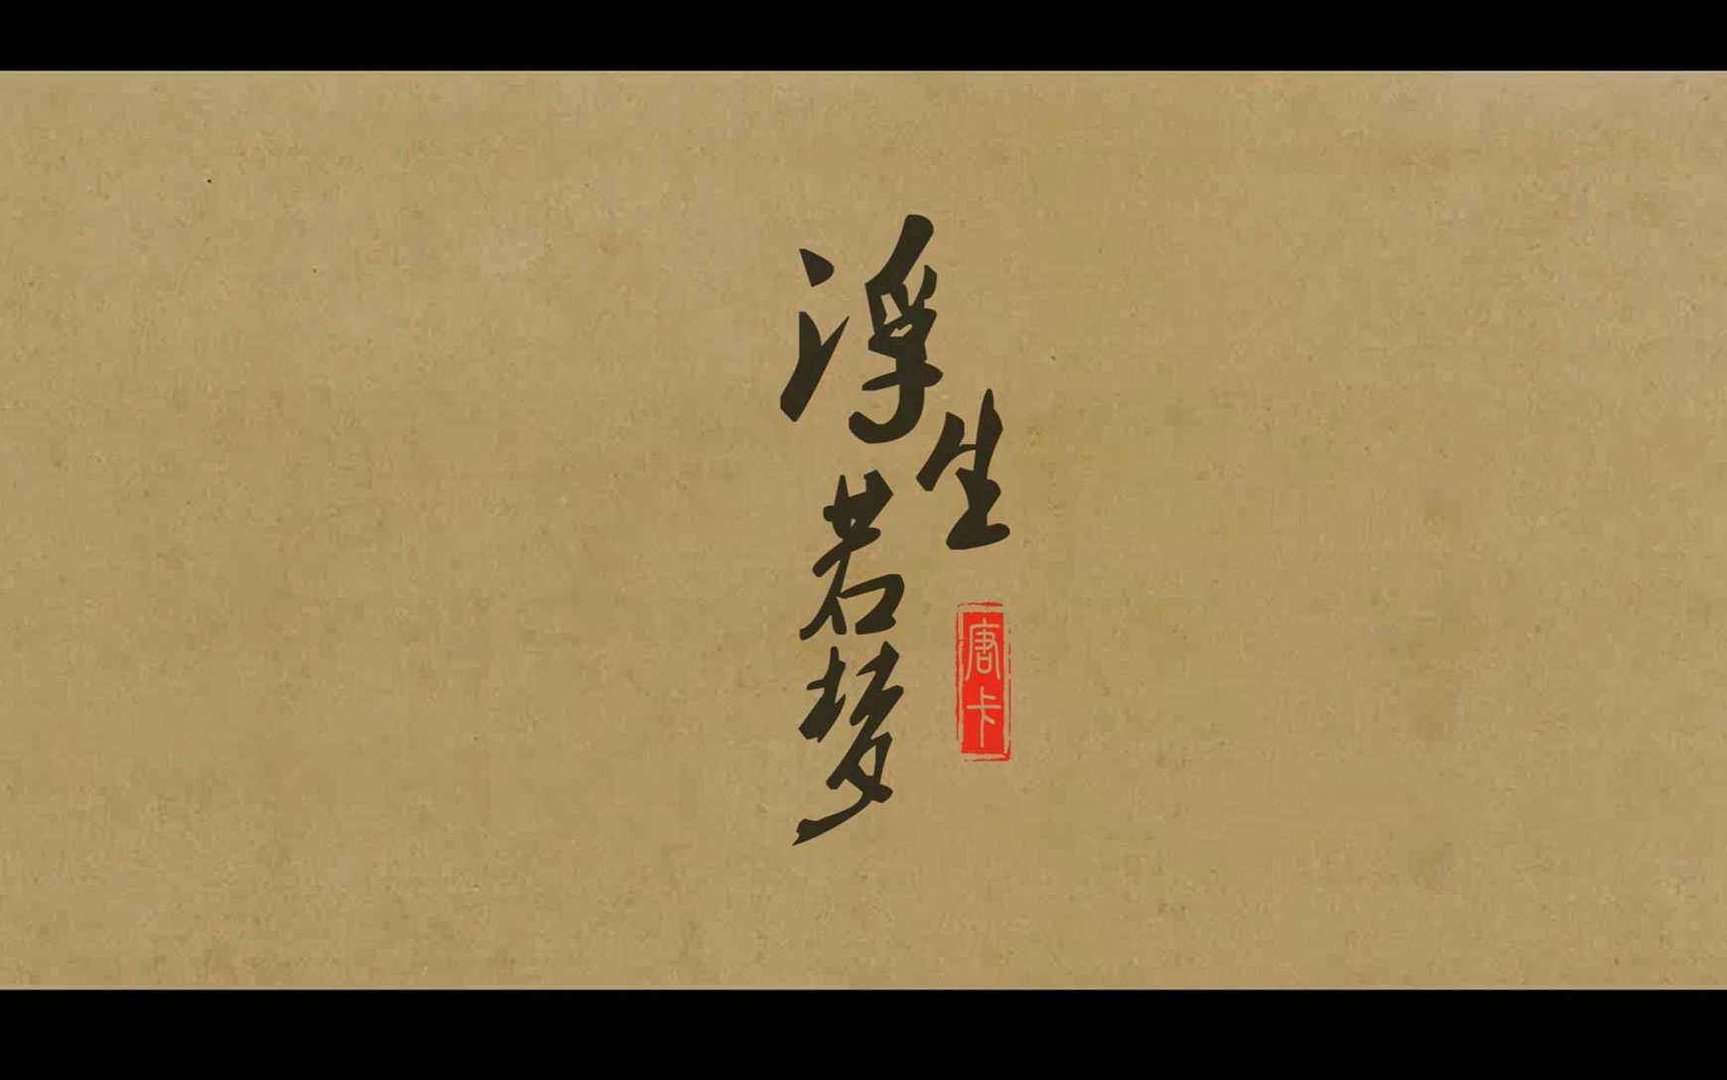 浮生若梦
唐卡